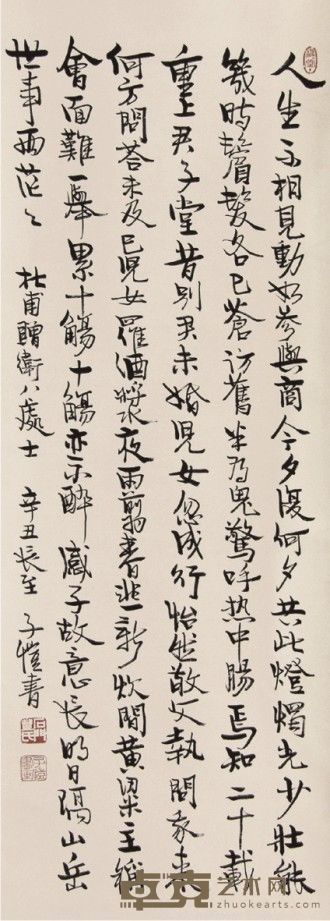 人生不相見動如參與商今夕復何夕共此燈燭光少壯能
幾時鬢髮各已蒼訪舊半為鬼驚呼热中腸焉知二十載
重上君子堂昔別君未婚兒女忽成行怡然敬父執問我來
何方問荅未及已兒女羅酒漿夜雨翦春韭新炊間黃粱主稱
會面難一舉累十觴十觴亦不醉感子故意長明日隔山岳
世事兩茫々 杜甫贈衛八處士 辛丑長至 子愷書
卓克艺术网
zhuokearts.com